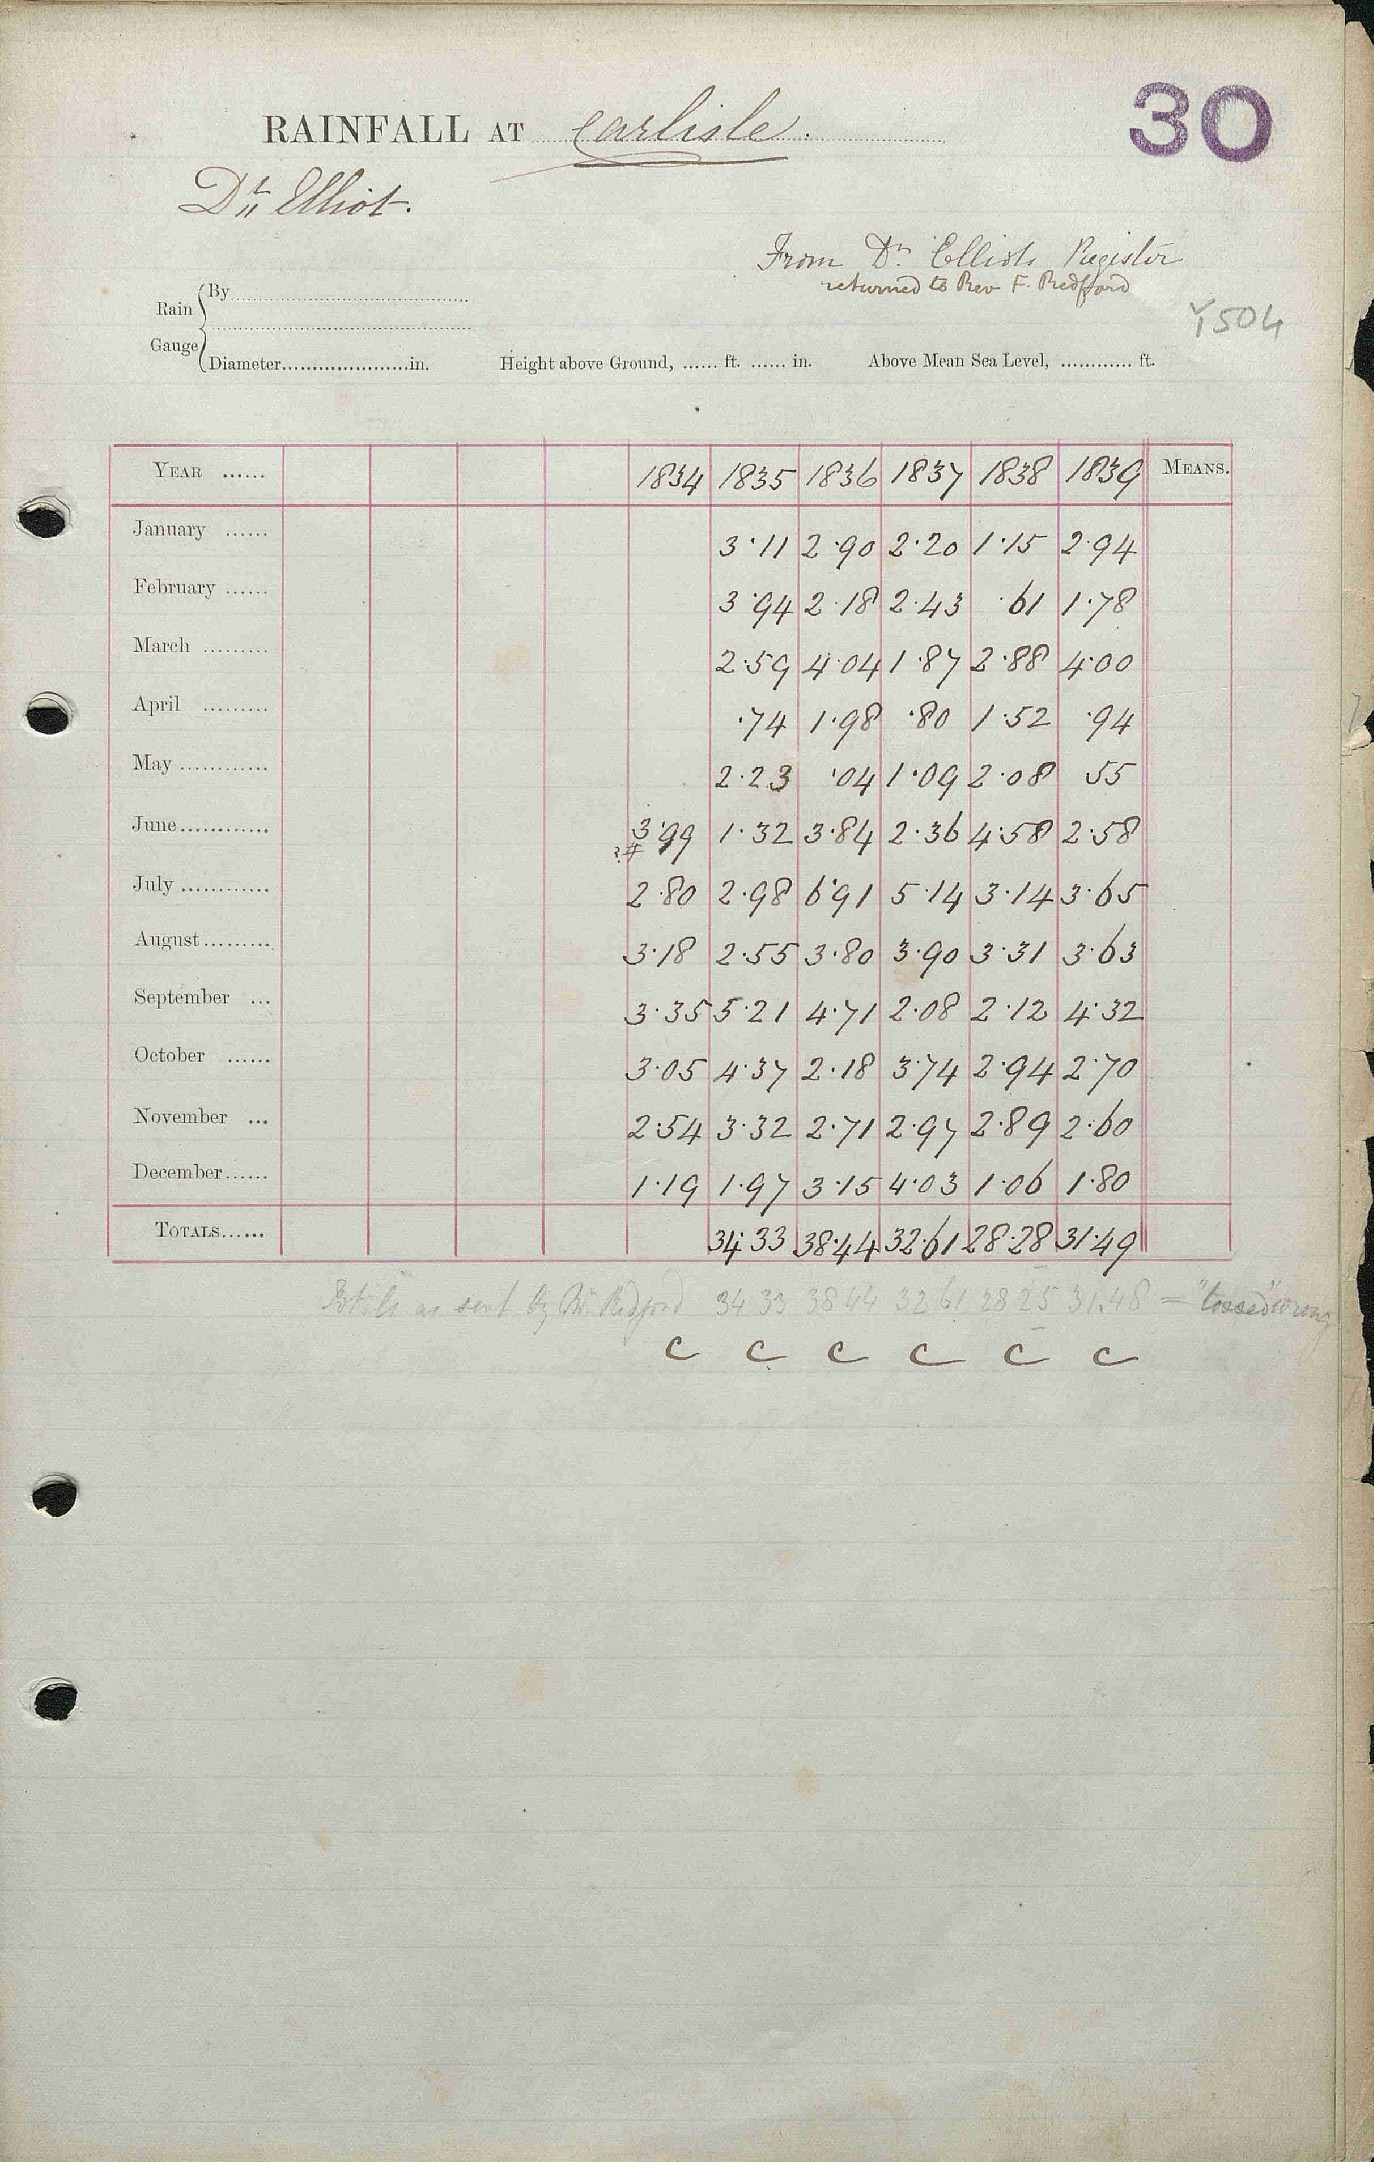 30
RAINFALL AT Carlisle.
Dr Elliot.
From Dr Elliots Register
returned to Rev F. Redford
Y504
Rain Gauge
By
Diameter.....................in. Height above Ground, ...... ft. ...... in. Above Mean Sea Level, ............ ft.
YEAR ...... 1834 1835 1836 1837 1838 1839 MEANS.
January ...... 3.11 2.90 2.20 1.15 2.94
February ...... 3.94 2.18 2.43 .61 1.78
March ......... 2.59 4.04 1.87 2.88 4.00
April ......... .74 1.98 .80 1.52 .94
May ............ 2.23 .04 1.09 2.08 55
June............ 3.99 1.32 3.84 2.36 4.58 2.58
July ............ 2.80 2.98 6.91 5.14 3.14 3.65
August......... 3.18 2.55 3.80 3.90 3.31 3.63
September ... 3.35 5.21 4.71 2.08 2.12 4.32
October ...... 3.05 4.37 2.18 3.74 2.94 2.70
November ... 2.54 3.32 2.71 2.97 2.89 2.60
December...... 1.19 1.97 3.15 4.03 1.06 1.80
TOTALS...... 34.33 38.44 32.61 28.28 31.49
Totals as sent by Mr Redford 34 33 38 44 32 61 28 25 31.48 = "tossed" wrong
C C C C C C